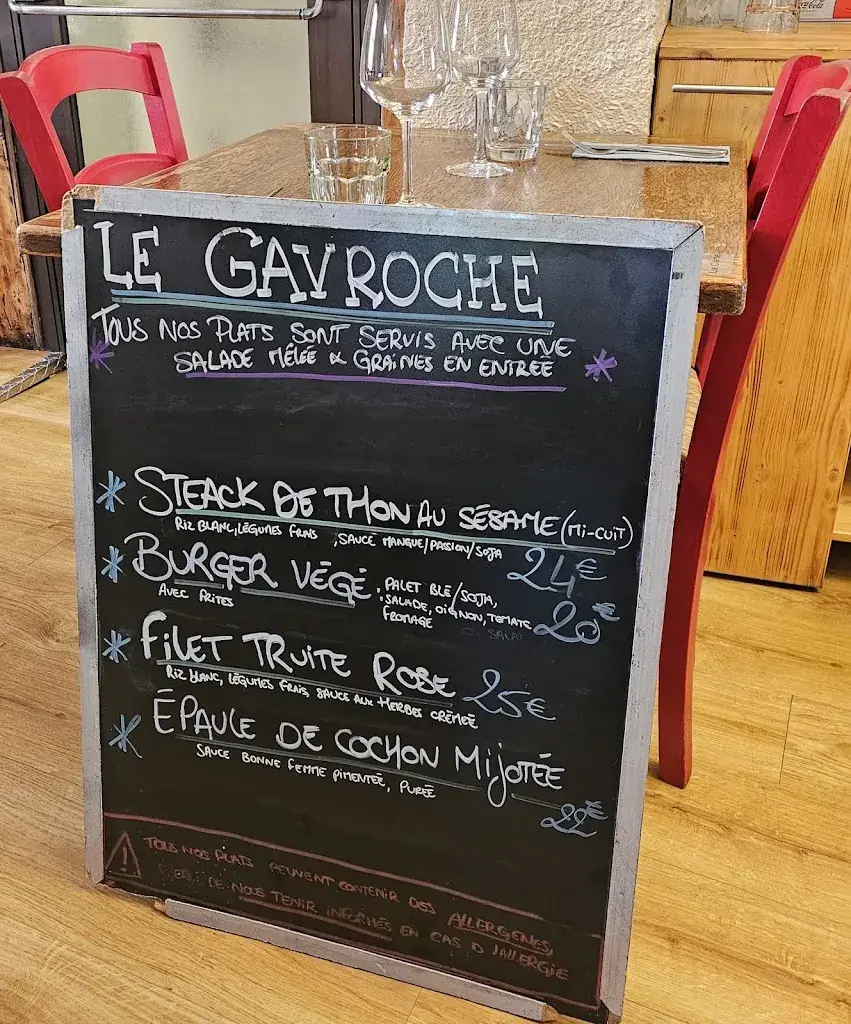 Coca-Cola
LE GAVROCHE
TOUS NOS PLATS SONT SERVIS AVEC UNE
SALADE MÊLÉE & GRAINES EN ENTRÉE
STEACK DE THON AU SÉSAME (MI-CUIT)
RIZ BLANC, LÉGUMES FRAIS, SAUCE MANGUE/PASSION/SOJA
24€
BURGER VÉGÉ
AVEC FRITES
: PALET BLÉ/SOJA,
SALADE, OIGNON, TOMATE
FROMAGE
20€
FILET TRUITE ROSE 25€
RIZ BLANC, LÉGUMES FRAIS, SAUCE AUX HERBES CRÉMÉE
ÉPAULE DE COCHON MIJOTÉE
SAUCE BONNE FEMME PIMENTÉE, PURÉE
22€
TOUS NOS PLATS PEUVENT CONTENIR DES ALLERGÈNES,
DE NOUS TENIR INFORMÉS EN CAS D'ALLERGIE